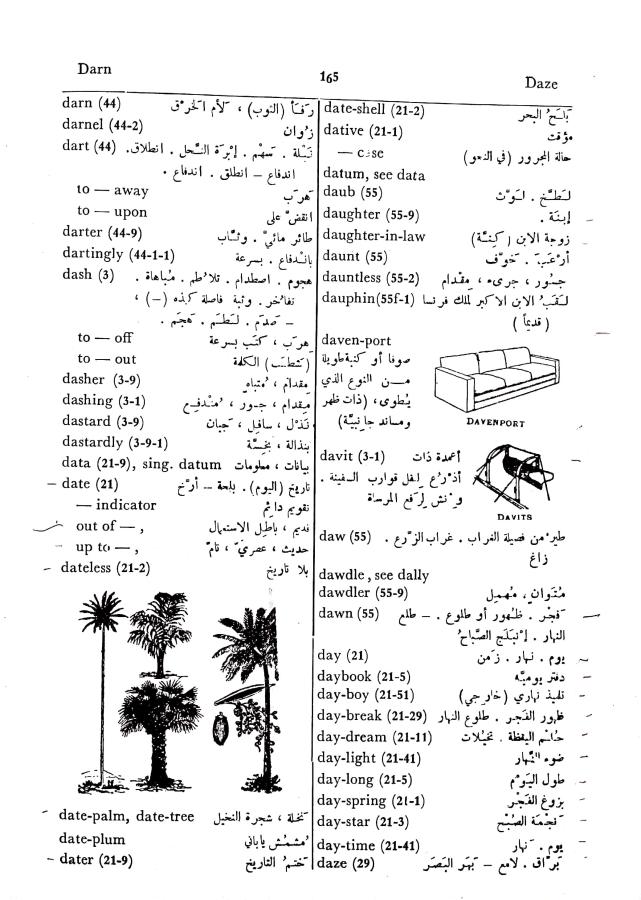 Darn
165
Daze
darn (44) رَفَأَ (الثوب) ، لأم الخَرْق
darnel (44-2) زُوان
dart (44) نَبْلَة . سَهْم . إبْرَة النَّحل . انطلاق.
اندفاع – انطلق . اندفاع .
to — away هَرَب
to — upon انقضّ على
darter (44-9) طائر مائيّ . وثّاب
dartingly (44-1-1) باندفاع . بسرعة
dash (3) هجوم . اصطدام . تلاطم . مُباهاة .
تفاخُر . وثبة فاصلة كهذه (–) ،
– صَدَمَ . لَطَمَ . هَجَم .
to — off هرَب ، كتَب بسرعة
to — out (شَطَب) الكلمة
dasher (3-9) مِقدام ، مُتباهٍ
dashing (3-1) مِقدام ، جَسور ، مُندفِع
dastard (3-9) نَذْل ، سافِل ، جَبان
dastardly (3-9-1) بنذالة ، بخِسَّة
data (21-9), sing. datum بيانات ، معلومات
– date (21) تاريخ (اليوم) . بلحة – أرَّخ
— indicator تقويم دائم
out of —, قديم ، باطِل الاستعمال
- up to —, حديث ، عصريّ ، تامّ
– dateless (21-2) بلا تاريخ
- date-palm, date-tree نَخلة ، شجرة النخيل
date-plum مُشمُش ياباني
– dater (21-9) خَتمُ التاريخ
date-shell (21-2) بَلَحُ البحر
dative (21-1) مؤقت
— case حالة المجرور (في النحو)
datum, see data
daub (55) لَطَّخ . لَوَّث
daughter (55-9) إبنَة .
daughter-in-law زوجة الابن (كَنّة)
daunt (55) أرْعَبَ . خَوَّف
dauntless (55-2) جَسُور ، جريء ، مِقْدام
dauphin(55f-1) لَقَبُ الابن الاكبر لملك فرنسا
(قديماً)
daven-port
صوفا أو كنبة طويلة
مـن النوع الذي
يُطوى، (ذات ظهر
ومساند جانبيَّة)
DAVENPORT
davit (3-1) أعمدة ذات
أذرُع لنقل قوارب السفينة .
ونش لِرفع المرساة
DAVITS
daw (55) طير من فصيلة الغراب . غراب الزّرع .
زاغ
dawdle, see dally
dawdler (55-9) مُتَوانٍ ، مُهمِل
dawn (55) فَجْر . ظهور أو طلوع . – طلع
النهار . انبَلَجَ الصَّباحُ
day (21) يوم . نهار . زَمن
daybook (21-5) دفتر يوميَّه
day-boy (21-51) تلميذ نهاري (خارجي)
day-break (21-29) ظهور الفَجر . طلوع النهار
day-dream (21-11) حُلم اليقظة . تخيُّلات
day-light (21-41) ضوء النَّهار
day-long (21-5) طول اليَوْم
day-spring (21-1) بزوغ الفَجْر
day-star (21-3) نَجْمَة الصُّبْح
day-time (21-41) يوم . نَهار
daze (29) بَرّاق . لامع – بَهَر البَصَر